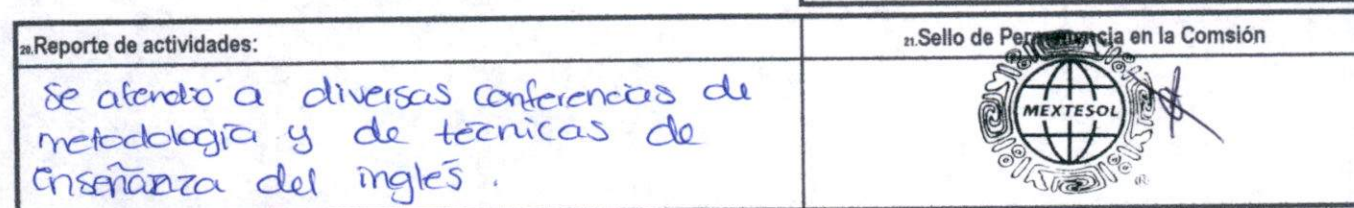 20.Reporte de actividades:
Se atendió a diversas conferencias de
metodología y de técnicas de
enseñanza del inglés.
21.Sello de Permanencia en la Comsión
MEXTESOL